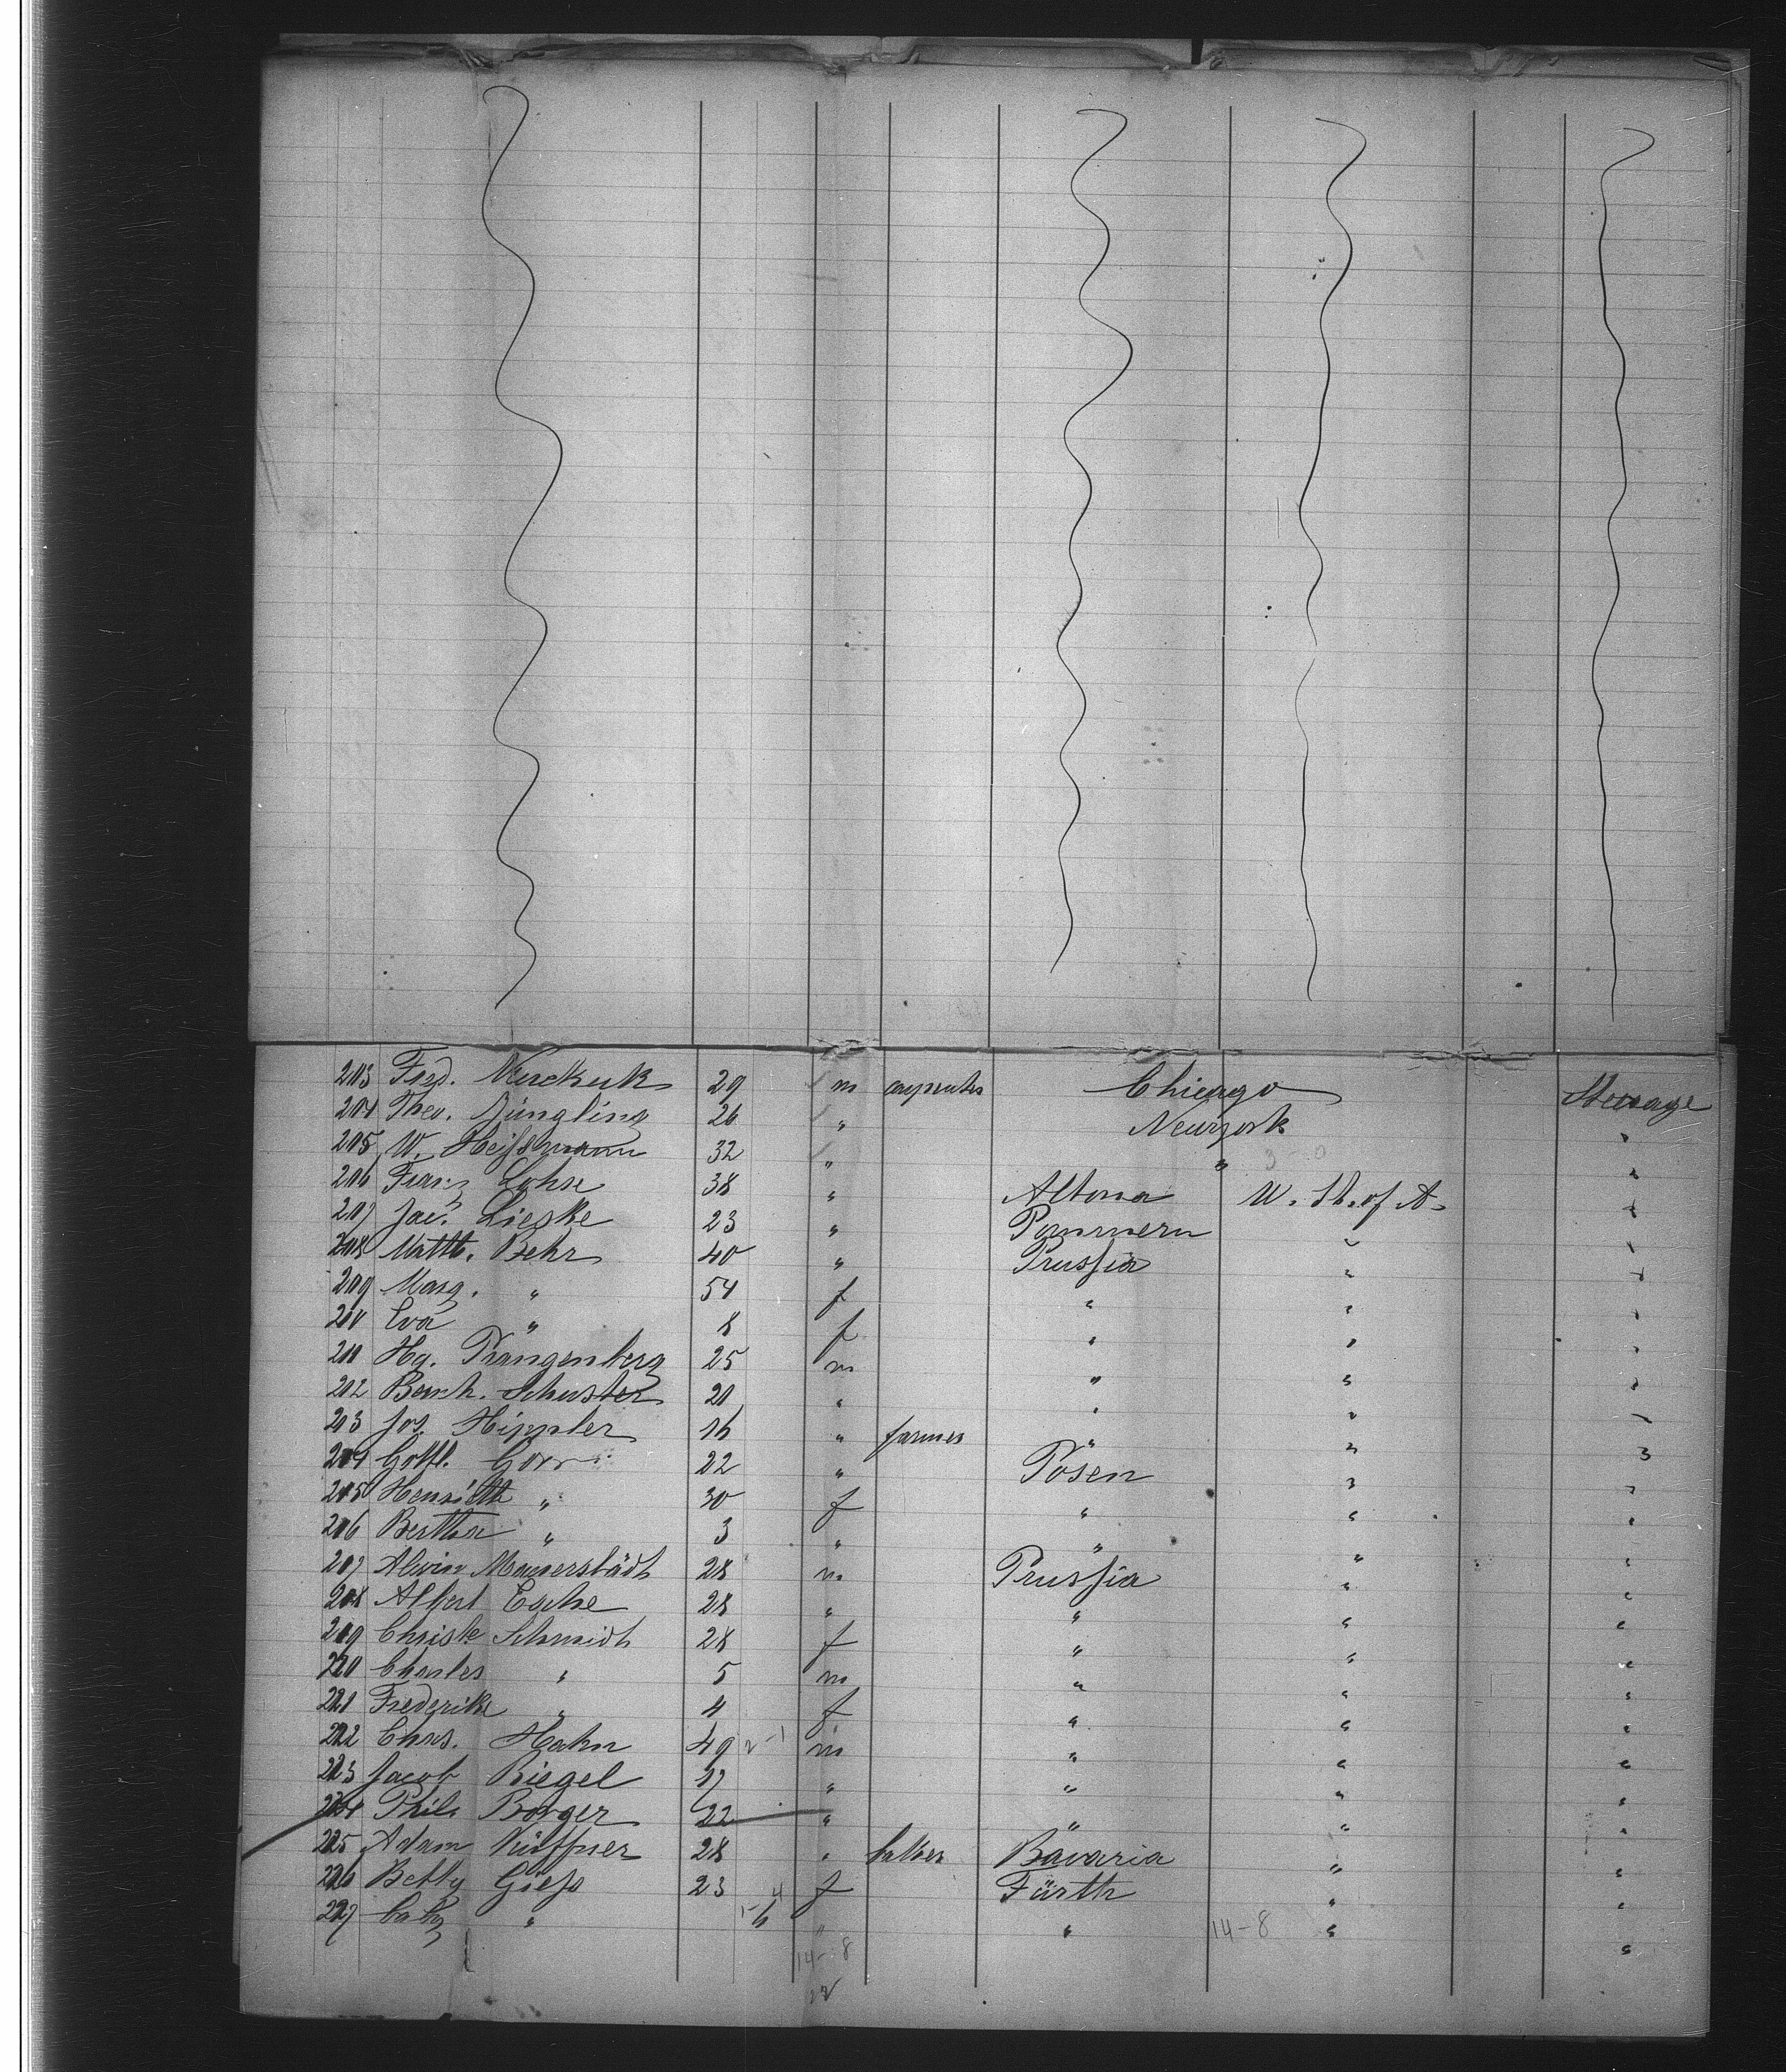 203 Fred. Neuckuk 29 m carpenter Chicago Steerage
204 Theo. Jüngling 26 " " Newyork "
205 W. Heissmann 32 " " "
206 Franz Lohse 38 " Altona U. St. of A. "
207 Jac. Lieske 23 " Pommern " "
208 Matth. Behr 40 " Prussia " "
209 Marg. " 54 f " " "
210 Eva " 8 f " " "
211 Hg. Prangenberg 25 m " " "
212 Bernh. Schuster 20 " " " "
213 Jos. Hippler 16 " farmer " " "
214 Gottl. Gorr 22 " Posen " "
215 Henriette " 30 f " " "
216 Bertha " 3 " " " "
217 Alwin Mauserstädt 28 m Prussia " "
218 Albert Esche 28 " " " "
219 Christe Schmidt 28 f " " "
220 Charles " 5 m " " "
221 Frederike " 4 f " " "
222 Chas. Hahn 49 m " " "
223 Jacob Riegel 17 " " " "
224 Phil. Borger 22 " " " "
225 Adam Küffner 28 " Bavaria " "
226 Betty Giess 23 f Fürth " "
227 baby " " " 14-8 " "
14-8
22